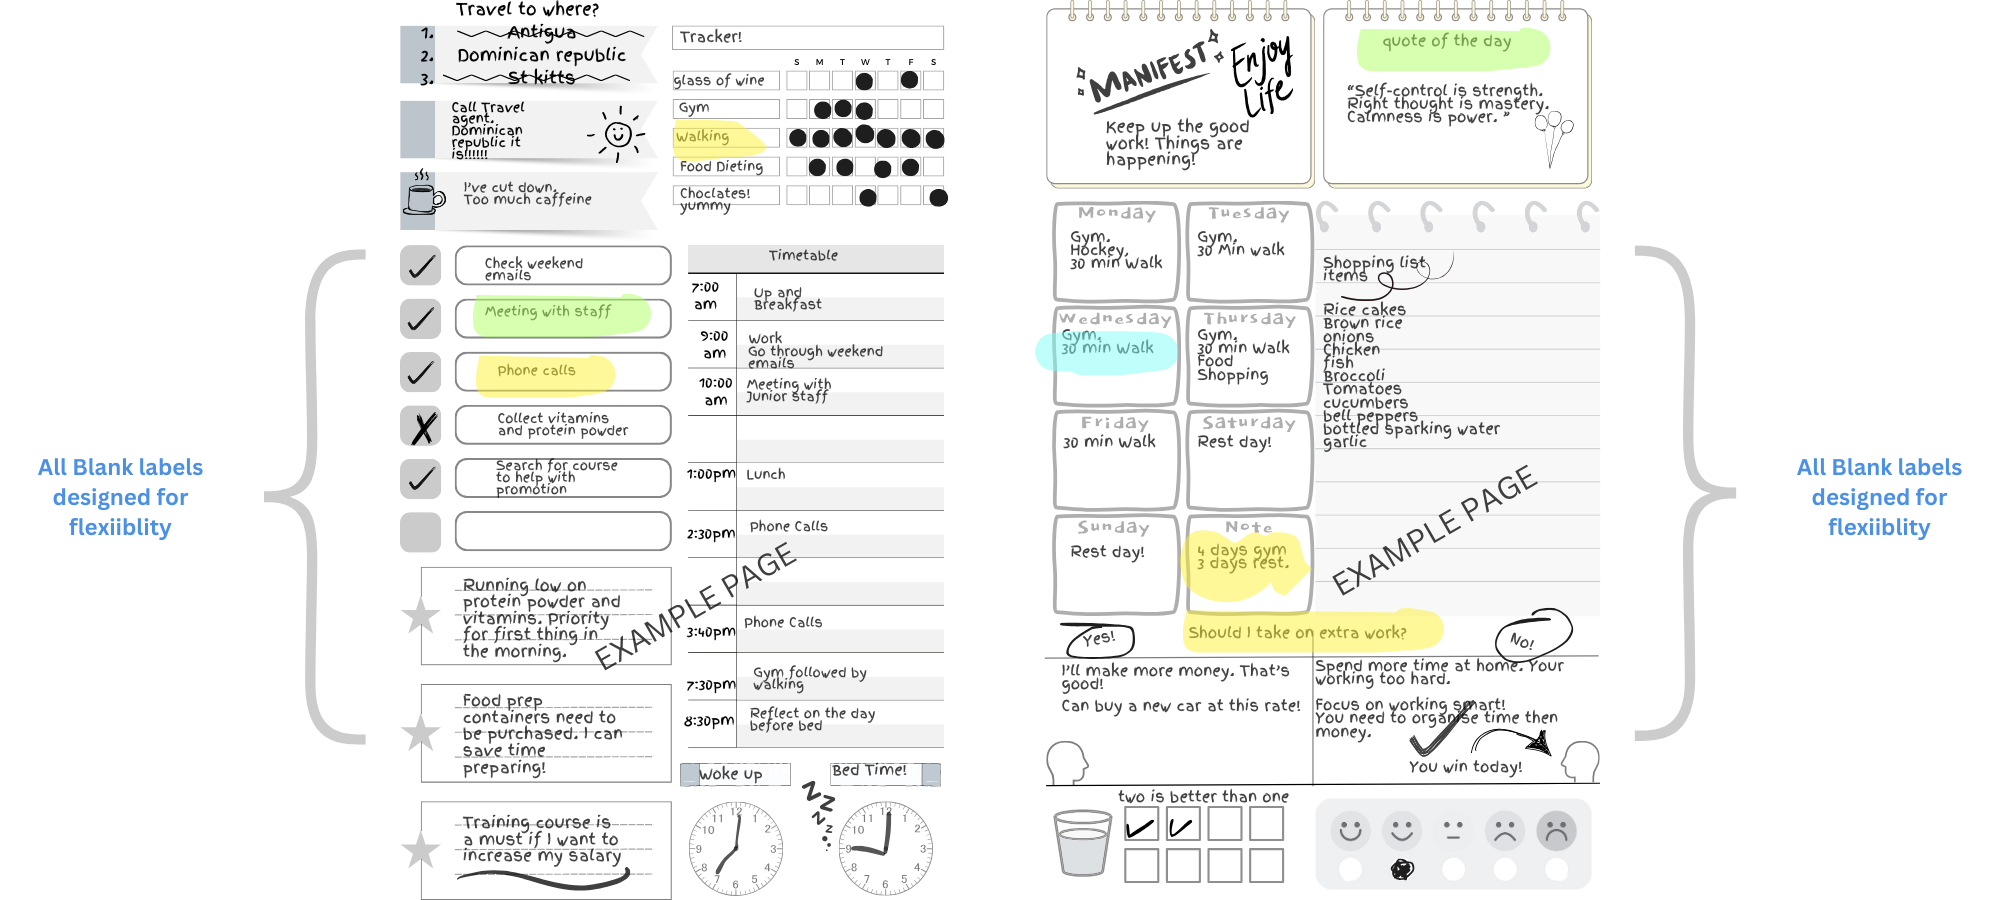 Travel to where?
1. Antigua
2. Dominican republic
3. St kitts
Call Travel
agent.
Dominican
republic it
is!!!!!!
I've cut down.
Too much caffeine
Tracker!
S M T W T F S
glass of wine
Gym
Walking
Food Dieting
Choclates!
yummy
Check weekend
emails
Meeting with staff
Phone calls
Collect vitamins
and protein powder
Search for course
to help with
promotion
Running low on
protein powder and
vitamins. Priority
for first thing in
the morning.
Food prep
containers need to
be purchased. I can
save time
preparing!
Training course is
a must if I want to
increase my salary
Timetable
7:00
am
Up and
Breakfast
9:00
am
Work
Go through weekend
emails
10:00
am
Meeting with
Junior staff
1:00pm Lunch
2:30pm Phone Calls
3:40pm Phone Calls
7:30pm Gym followed by
walking
8:30pm Reflect on the day
before bed
EXAMPLE PAGE
Woke up
Bed Time!
ZZZz
12 1 2 3 4 5 6 7 8 9 10 11
12 1 2 3 4 5 6 7 8 9 10 11
All Blank labels
designed for
flexiiblity
MANIFEST
Enjoy
Life
Keep up the good
work! Things are
happening!
quote of the day
“Self-control is strength.
Right thought is mastery.
Calmness is power. ”
Monday
Gym.
Hockey.
30 min Walk
Tuesday
Gym.
30 Min walk
Wednesday
Gym.
30 min Walk
Thursday
Gym.
30 min Walk
Food
Shopping
Friday
30 min Walk
Saturday
Rest day!
Sunday
Rest day!
Note
4 days gym
3 days rest.
Shopping list
items
Rice cakes
Brown rice
onions
Chicken
fish
Broccoli
Tomatoes
cucumbers
bell peppers
bottled sparking water
garlic
EXAMPLE PAGE
Yes!
Should I take on extra work?
No!
I'll make more money. That's
good!
Can buy a new car at this rate!
Spend more time at home. Your
working too hard.
Focus on working smart!
You need to organise time then
money.
You win today!
two is better than one
All Blank labels
designed for
flexiiblity